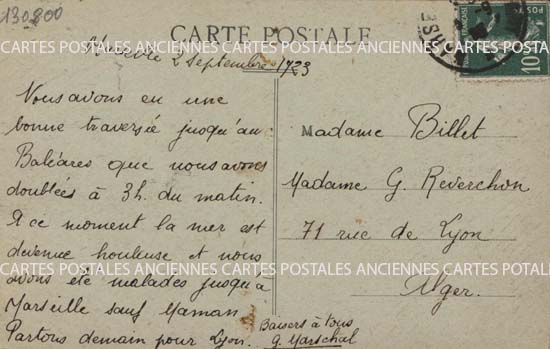 130800
CARTE POSTALE
CARTES POSTALES ANCIENNES CARTES POSTALES ANCIENNES CARTES POTALE
2 Septembre 1923
Nous avons eu une
bonne traversée jusqu'au
Baléares que nous avons
doublées à 3h. du matin.
A ce moment la mer est
devenue houleuse et nous
avons été malades jusqu'à
Marseille sauf Maman
Partons demain pour Lyon.
Baisers à tous
G. Marschal
Madame Billet
Madame G. Reverchon
71 rue de Lyon
Alger.
CARTES POSTALES ANCIENNES CARTES POSTALES ANCIENNES CARTES POTALE
POSTES
10